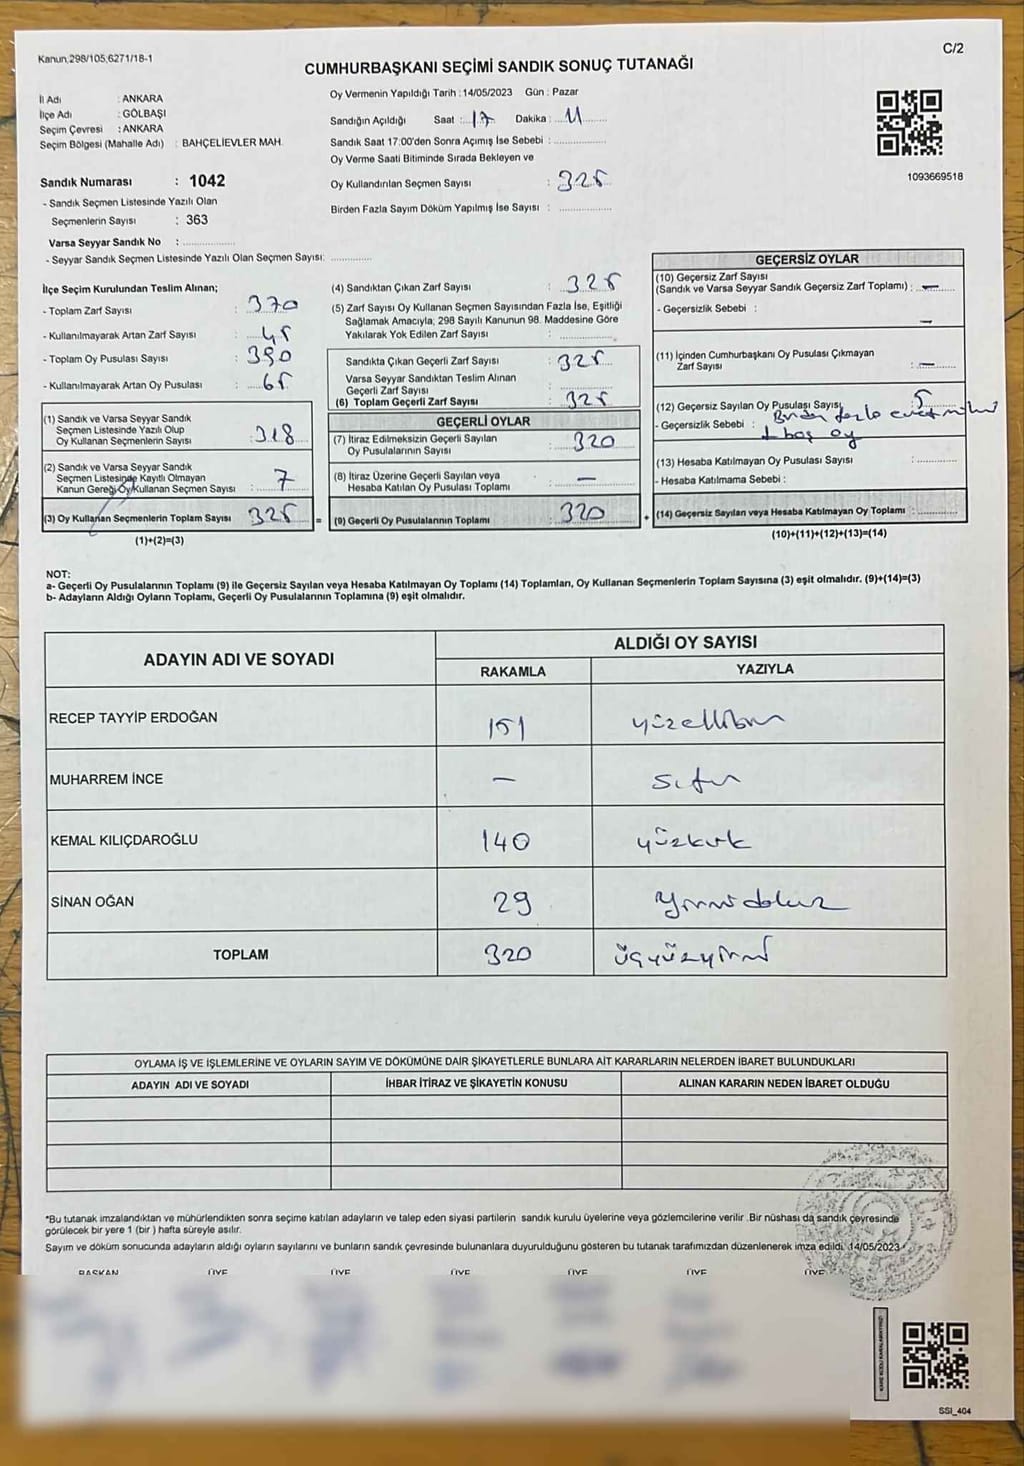 Kanun,298/105,6271/18-1
C/2
CUMHURBAŞKANI SEÇİMİ SANDIK SONUÇ TUTANAĞI
İl Adı : ANKARA
İlçe Adı : GÖLBAŞI
Seçim Çevresi : ANKARA
Seçim Bölgesi (Mahalle Adı) : BAHÇELİEVLER MAH.
Sandık Numarası : 1042
- Sandık Seçmen Listesinde Yazılı Olan
Seçmenlerin Sayısı : 363
Varsa Seyyar Sandık No : ..............
- Seyyar Sandık Seçmen Listesinde Yazılı Olan Seçmen Sayısı: ..............
Oy Vermenin Yapıldığı Tarih : 14/05/2023 Gün : Pazar
Sandığın Açıldığı Saat : 17 Dakika : 11
Sandık Saat 17:00'den Sonra Açımış İse Sebebi : ..............
Oy Verme Saati Bitiminde Sırada Bekleyen ve
Oy Kullandırılan Seçmen Sayısı : 325
Birden Fazla Sayım Döküm Yapılmış İse Sayısı : ..............
1093669518
İlçe Seçim Kurulundan Teslim Alınan;
- Toplam Zarf Sayısı : 370
- Kullanılmayarak Artan Zarf Sayısı : 45
- Toplam Oy Pusulası Sayısı : 390
- Kullanılmayarak Artan Oy Pusulası : 65
(1) Sandık ve Varsa Seyyar Sandık
Seçmen Listesinde Yazılı Olup
Oy Kullanan Seçmenlerin Sayısı : 318
(2) Sandık ve Varsa Seyyar Sandık
Seçmen Listesinde Kayıtlı Olmayan
Kanun Gereği Oy Kullanan Seçmen Sayısı : 7
(3) Oy Kullanan Seçmenlerin Toplam Sayısı 325 =
(1)+(2)=(3)
(4) Sandıktan Çıkan Zarf Sayısı : 325
(5) Zarf Sayısı Oy Kullanan Seçmen Sayısından Fazla İse, Eşitliği
Sağlamak Amacıyla, 298 Sayılı Kanunun 98. Maddesine Göre
Yakılarak Yok Edilen Zarf Sayısı : ..............
Sandıkta Çıkan Geçerli Zarf Sayısı : 325
Varsa Seyyar Sandıktan Teslim Alınan
Geçerli Zarf Sayısı : ..............
(6) Toplam Geçerli Zarf Sayısı : 325
GEÇERLİ OYLAR
(7) İtiraz Edilmeksizin Geçerli Sayılan
Oy Pusulalarının Sayısı : 320
(8) İtiraz Üzerine Geçerli Sayılan veya
Hesaba Katılan Oy Pusulası Toplamı : —
(9) Geçerli Oy Pusulalarının Toplamı : 320 +
GEÇERSİZ OYLAR
(10) Geçersiz Zarf Sayısı
(Sandık ve Varsa Seyyar Sandık Geçersiz Zarf Toplamı) : —
- Geçersizlik Sebebi : —
(11) İçinden Cumhurbaşkanı Oy Pusulası Çıkmayan
Zarf Sayısı : —
(12) Geçersiz Sayılan Oy Pusulası Sayısı 5
- Geçersizlik Sebebi : Birden fazla
1 boş oy
(13) Hesaba Katılmayan Oy Pusulası Sayısı : ..............
- Hesaba Katılmama Sebebi :
(14) Geçersiz Sayılan veya Hesaba Katılmayan Oy Toplamı : ..............
(10)+(11)+(12)+(13)=(14)
NOT:
a- Geçerli Oy Pusulalarının Toplamı (9) ile Geçersiz Sayılan veya Hesaba Katılmayan Oy Toplamı (14) Toplamları, Oy Kullanan Seçmenlerin Toplam Sayısına (3) eşit olmalıdır. (9)+(14)=(3)
b- Adayların Aldığı Oyların Toplamı, Geçerli Oy Pusulalarının Toplamına (9) eşit olmalıdır.
ADAYIN ADI VE SOYADI ALDIĞI OY SAYISI
RAKAMLA YAZIYLA
RECEP TAYYİP ERDOĞAN 151 yüzellibir
MUHARREM İNCE — sıfır
KEMAL KILIÇDAROĞLU 140 yüzkırk
SİNAN OĞAN 29 yirmidokuz
TOPLAM 320 üçyüzyirmi
OYLAMA İŞ VE İŞLEMLERİNE VE OYLARIN SAYIM VE DÖKÜMÜNE DAİR ŞİKAYETLERLE BUNLARA AİT KARARLARIN NELERDEN İBARET BULUNDUKLARI
ADAYIN ADI VE SOYADI İHBAR İTİRAZ VE ŞİKAYETİN KONUSU ALINAN KARARIN NEDEN İBARET OLDUĞU
*Bu tutanak imzalandıktan ve mühürlendikten sonra seçime katılan adayların ve talep eden siyasi partilerin sandık kurulu üyelerine veya gözlemcilerine verilir .Bir nüshası da sandık çevresinde
görülecek bir yere 1 (bir ) hafta süreyle asılır.
Sayım ve döküm sonucunda adayların aldığı oyların sayılarını ve bunların sandık çevresinde bulunanlara duyurulduğunu gösteren bu tutanak tarafımızdan düzenlenerek imza edildi. 14/05/2023
BAŞKAN ÜYE ÜYE ÜYE ÜYE ÜYE ÜYE
SSI_404